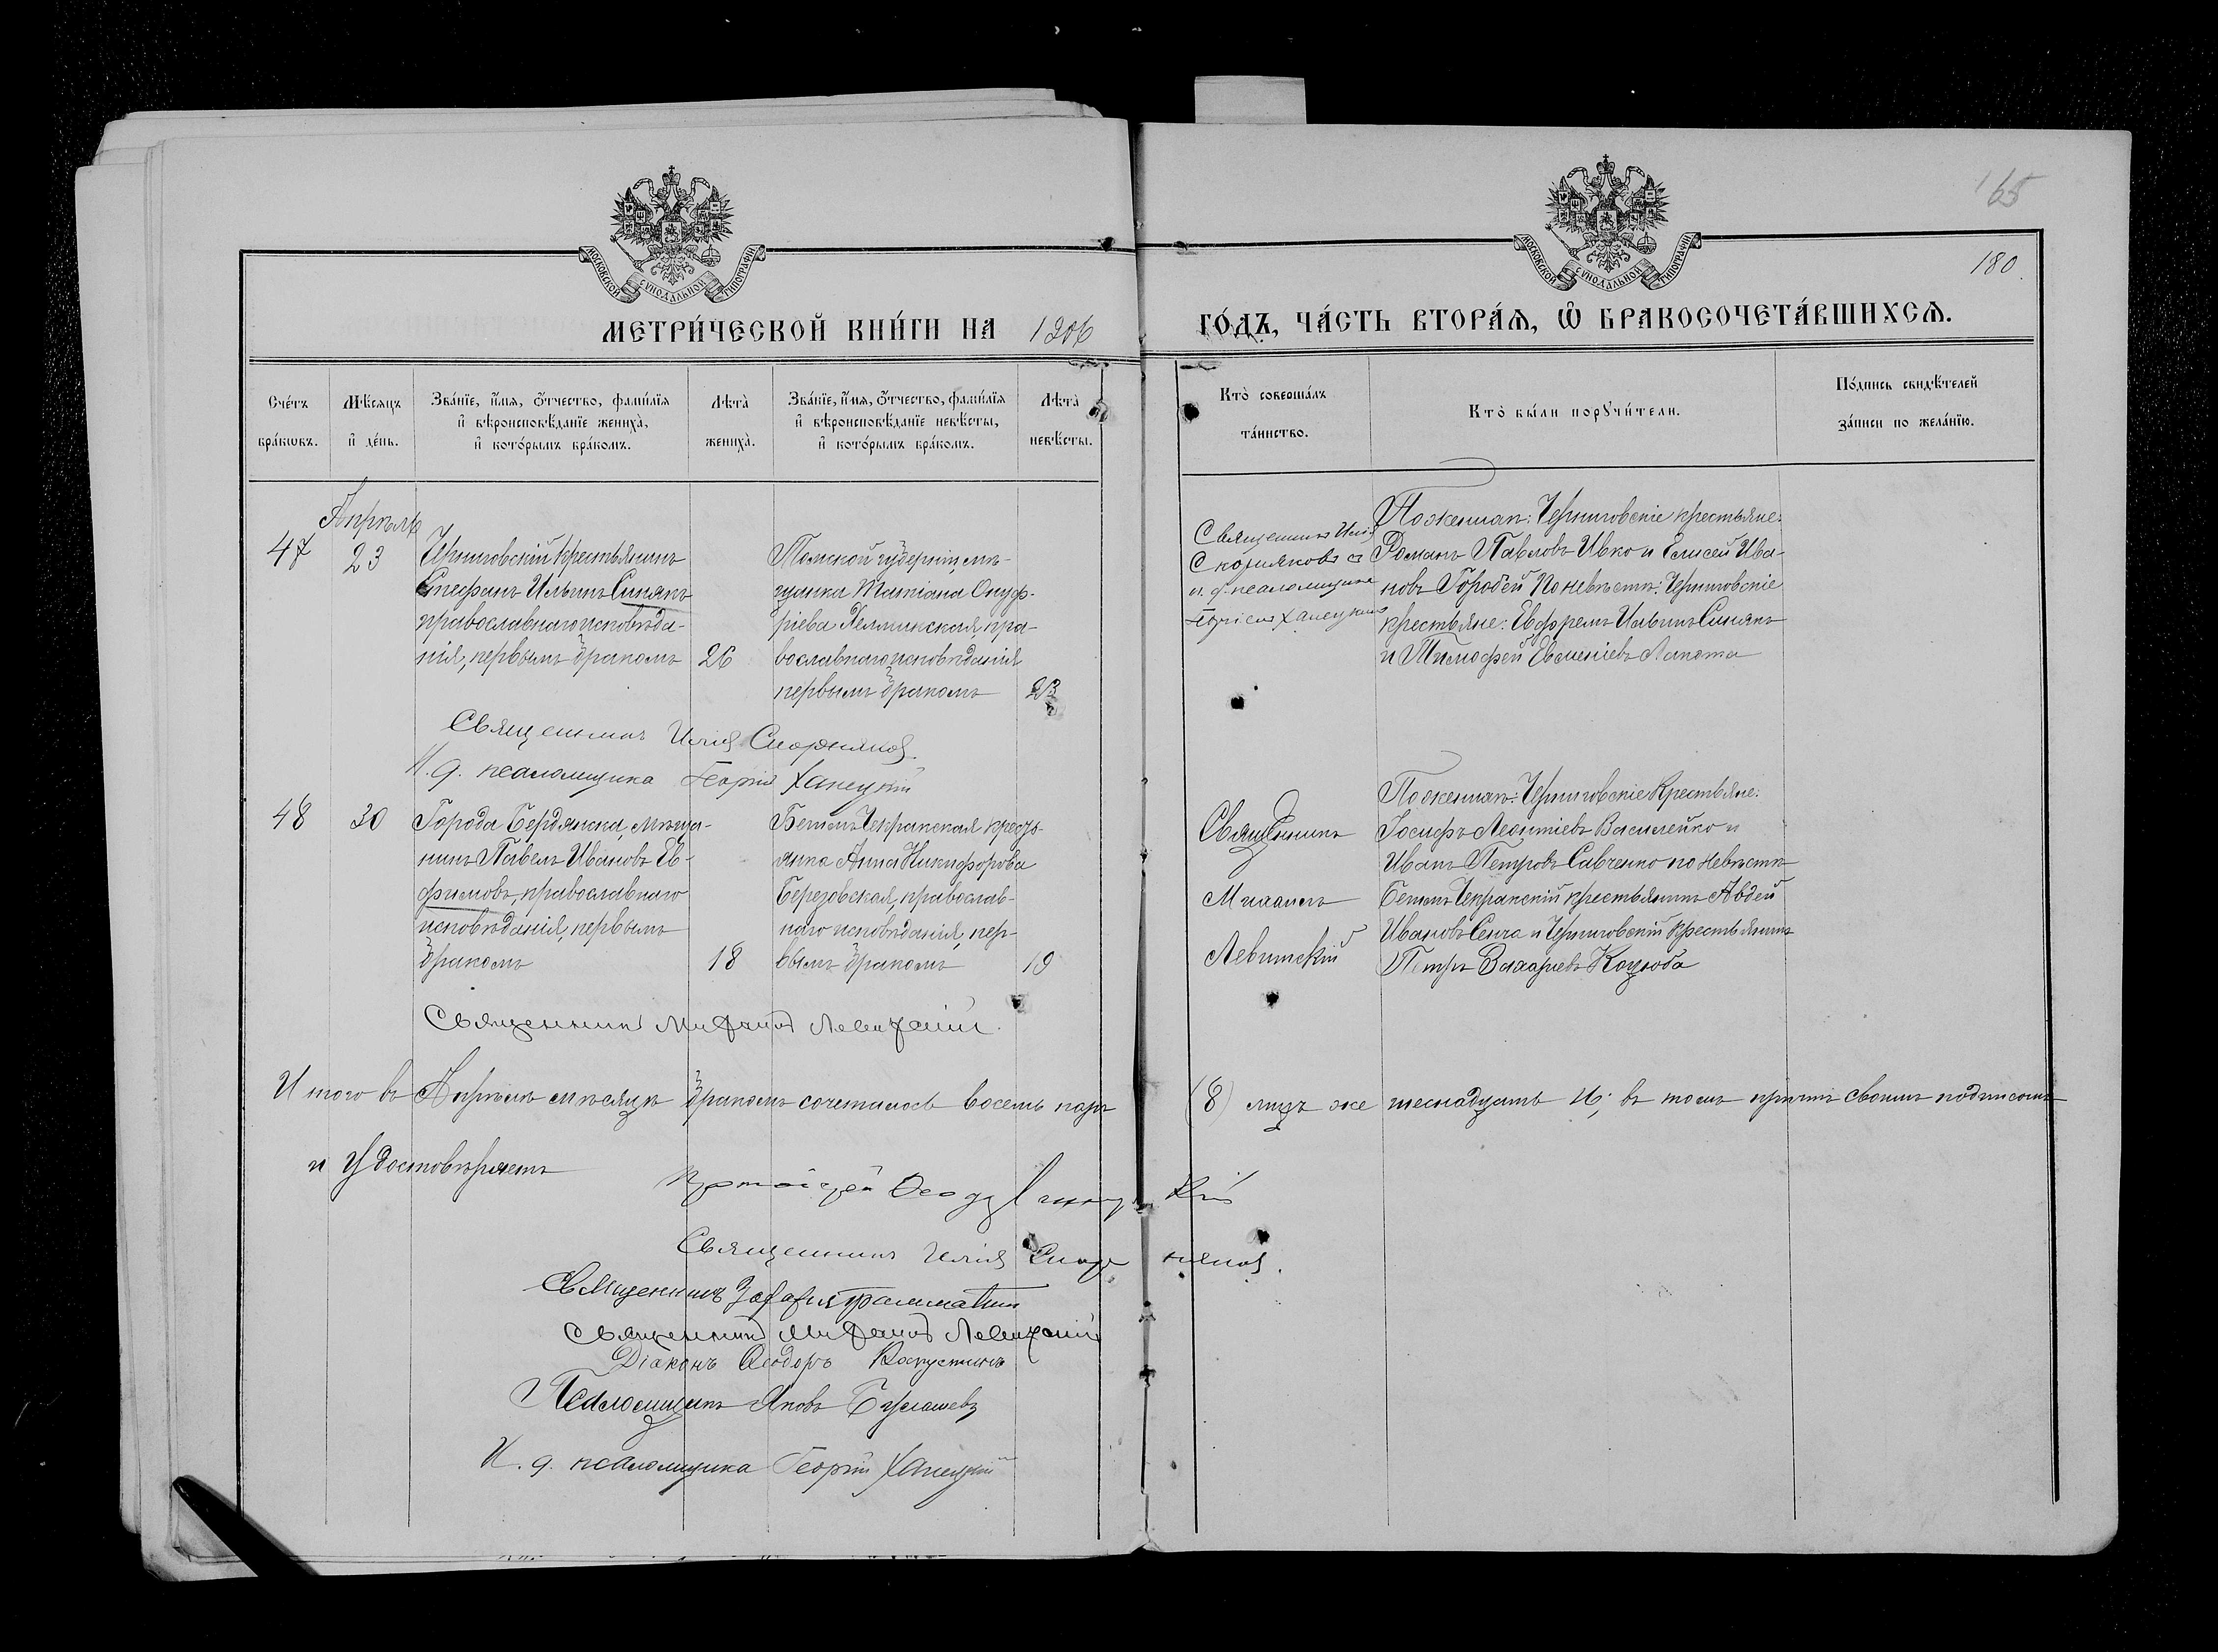 165
180.
МОСКОВСКОЙ СУНОДАЛЬНОЙ ТИПОГРАФІИ
МОСКОВСКОЙ СУНОДАЛЬНОЙ ТИПОГРАФІИ
МЕТРИ́ЧЕСКОЙ КНИ́ГИ НА 1906
ГО́ДЪ, ЧА́СТЬ ВТОРА́Я, Ѽ БРАКОСОЧЕТА́ВШИХСЯ.
Сче́тъ бра́кѡвъ.
Мѣ́сяцъ и҆ де́нь.
Зва́нїе, и҆́мя, ѻ҆́тчество, фами́лїя
и҆ вѣроисповѣ́данїе жениха̀,
и҆ кото́рымъ бра́комъ.
Лѣта̀ жениха̀.
Зва́нїе, и҆́мя, ѻ҆́тчество, фами́лїя
и҆ вѣроисповѣ́данїе невѣ́сты,
и҆ кото́рымъ бра́комъ.
Лѣта̀ невѣ́сты.
Кто̀ соверша́лъ та́инство.
Кто̀ бы́ли порꙋчи́тели.
По́дпись свидѣ́телей за́писи по жела́нїю.
47
Апрѣль
23
Черниговскій крестьянинъ
Стефанъ Ильинъ Синякъ
православнаго исповѣда-
нія, первымъ бракомъ
26
Томской губерніи, мѣ-
щанка Татіана Онуф-
ріева, пра-
вославнаго исповѣданія
первымъ бракомъ
23
Священникъ Илія
Скорняковъ съ
и. д. псаломщика
Георгіемъ Ханецкимъ
По женихѣ: Черниговскіе крестьяне:
Романъ Павловъ Ивко и Елисей Ива-
новъ Горобей По невѣстѣ: Черниговскіе
крестьяне: Евфремъ Ильинъ Синякъ
и Тимофей Евменіевъ Лапота
Священникъ Илія Скорняковъ
И. д. псаломщика Георгій Ханецкій
48
30
Города Бердянска, мѣща-
нинъ Павелъ Ивановъ Ев-
фимовъ, православнаго
исповѣданія, первымъ
бракомъ
18
Бешъ Чекракская кресть-
янка Анна Никифорова
Березовская, православ-
наго исповѣданія, пер-
вымъ бракомъ
19
Священникъ
Михаилъ
Левитскій
По женихѣ: Черниговскіе Крестьяне:
Іосифъ Леонтіевъ Василейко и
Иванъ Петровъ Савченко по невѣстѣ
Бешъ Чекракскій крестьянинъ Авдей
Ивановъ Сенча и Черниговскій крестьянинъ
Петръ Захаріевъ Коцюба
Священникъ Михаилъ Левитскій.
Итого въ Апрѣлѣ мѣсяцѣ бракомъ сочеталось восемь паръ (8) лицъ же шеснадцать 16; въ томъ причтъ своимъ подписомъ
и удостовѣряетъ
Протоіерей
Священникъ Илія Скорняковъ.
Священникъ Захарія Грамматинъ
Священникъ Михаилъ Левитскій
Діаконъ Ѳеодоръ Капустинъ
Псаломщикъ Яковъ
И. д. псаломщика Георгій Ханецкій